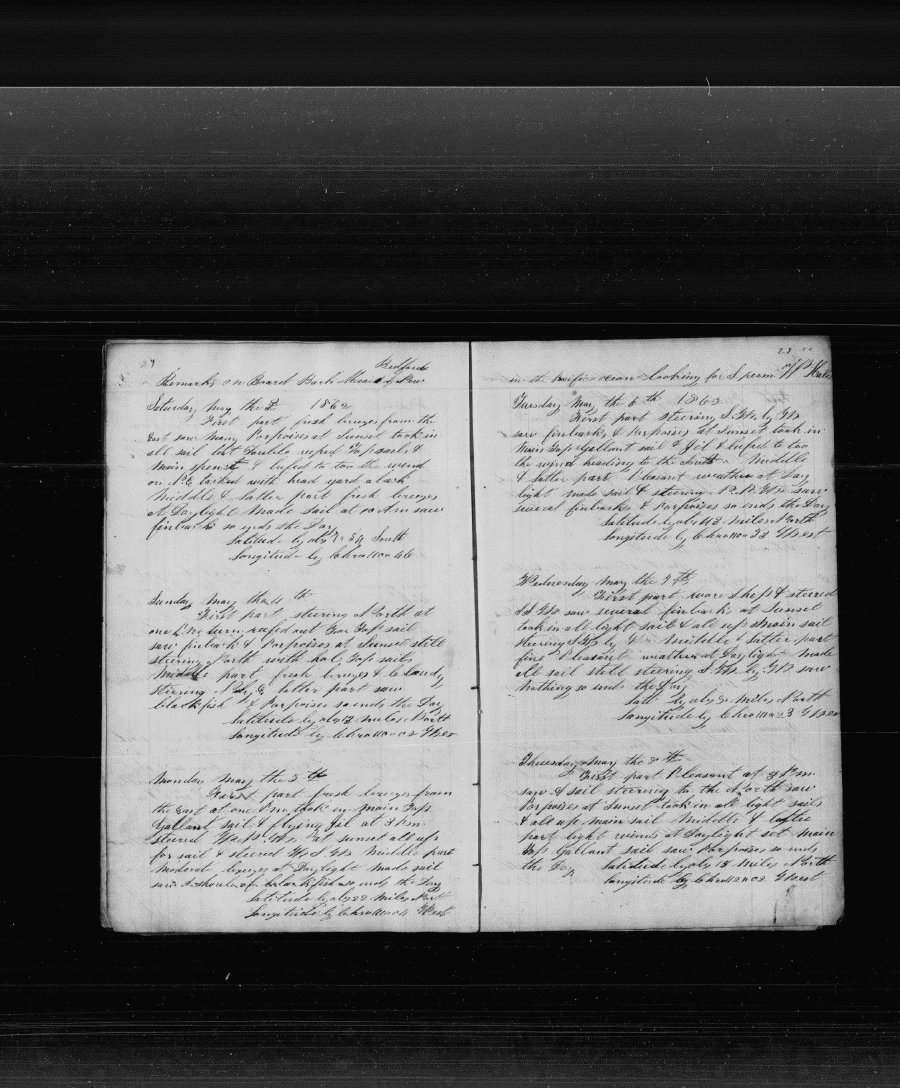 27
Bedford
Remarks on Board Bark of New
Saturday May the 3 1862
First part fresh breezes from the
East saw many Porpoises at Sunset took in
all sail but Double reefed Topsails &
Main spencer & lufed to too the wind
on N.E. tacked with head yard aback
Middle & latter part fresh breezes
at Daylight Made Sail at 10 A m saw
finbacks so ends the Day
Latitude by obs 34 South
Longitude by Chro 110 " 46
Sunday May the 4 th
First part steering North at
one P.M. turn reefed out Fore Top sail
saw finback & Porpoises at Sunset still
steering North with hol Top sails
Middle part fresh breezes & Cloudy
steering N by E latter part saw
blackfish & Porpoises so ends the Day
Latitude by obs 3 miles North
Longitude by Chro 110 " 02 West
Monday May the 5 th
First part fresh breezes from
the East at one P m took in main Top
Gallant sail & flying Jib at 3 P.m.
steered W.N.W. at sunset all up
for sail & steered W.S.W. Middle part
Moderate breezes at Daylight made sail
saw a shoule of blackfish so ends the Day
Latitude by obs 22 miles North
Longitude by Chro 110 " 04 West
28
in the Pacific ocean looking for Sperm Whales
Tuesday May the 6 th 1862
First part steering S.W. by W
saw finbacks & Porpoises at Sunset took in
Main Top Gallant sail & Jib & lufed to too
the wind heading to the South Middle
& latter part Pleasant weather at Day
light made sail & steering N.N.W. saw
several finbacks & Porpoises so ends the Day
Latitude by obs 43 Miles North
Longitude by Chro 110 " 33 West
Wednesday May the 7 th
First part wore Ship & steered
S.S.W. saw several finbacks at Sunset
took in all light sail & all up Main sail
steering S.W. by W Middle & Latter part
fine Pleasant weather at Daylight made
all sail still steering S.W. by W saw
Nothing so ends the Day
Latt by obs Miles North
Longitude by Chro 111 " 23 West
Thuesday May the 8 th
First part Pleasant at 3 P.m.
saw a sail steering to the North saw
Porpoises at Sunset took in all light sails
& all up main sail Middle & lattie
part light winds at Daylight set Main
Top Gallant sail saw Porpoises so ends
the Day Latitude by obs 18 Miles North
Longitude by Chro 112 " 02 West